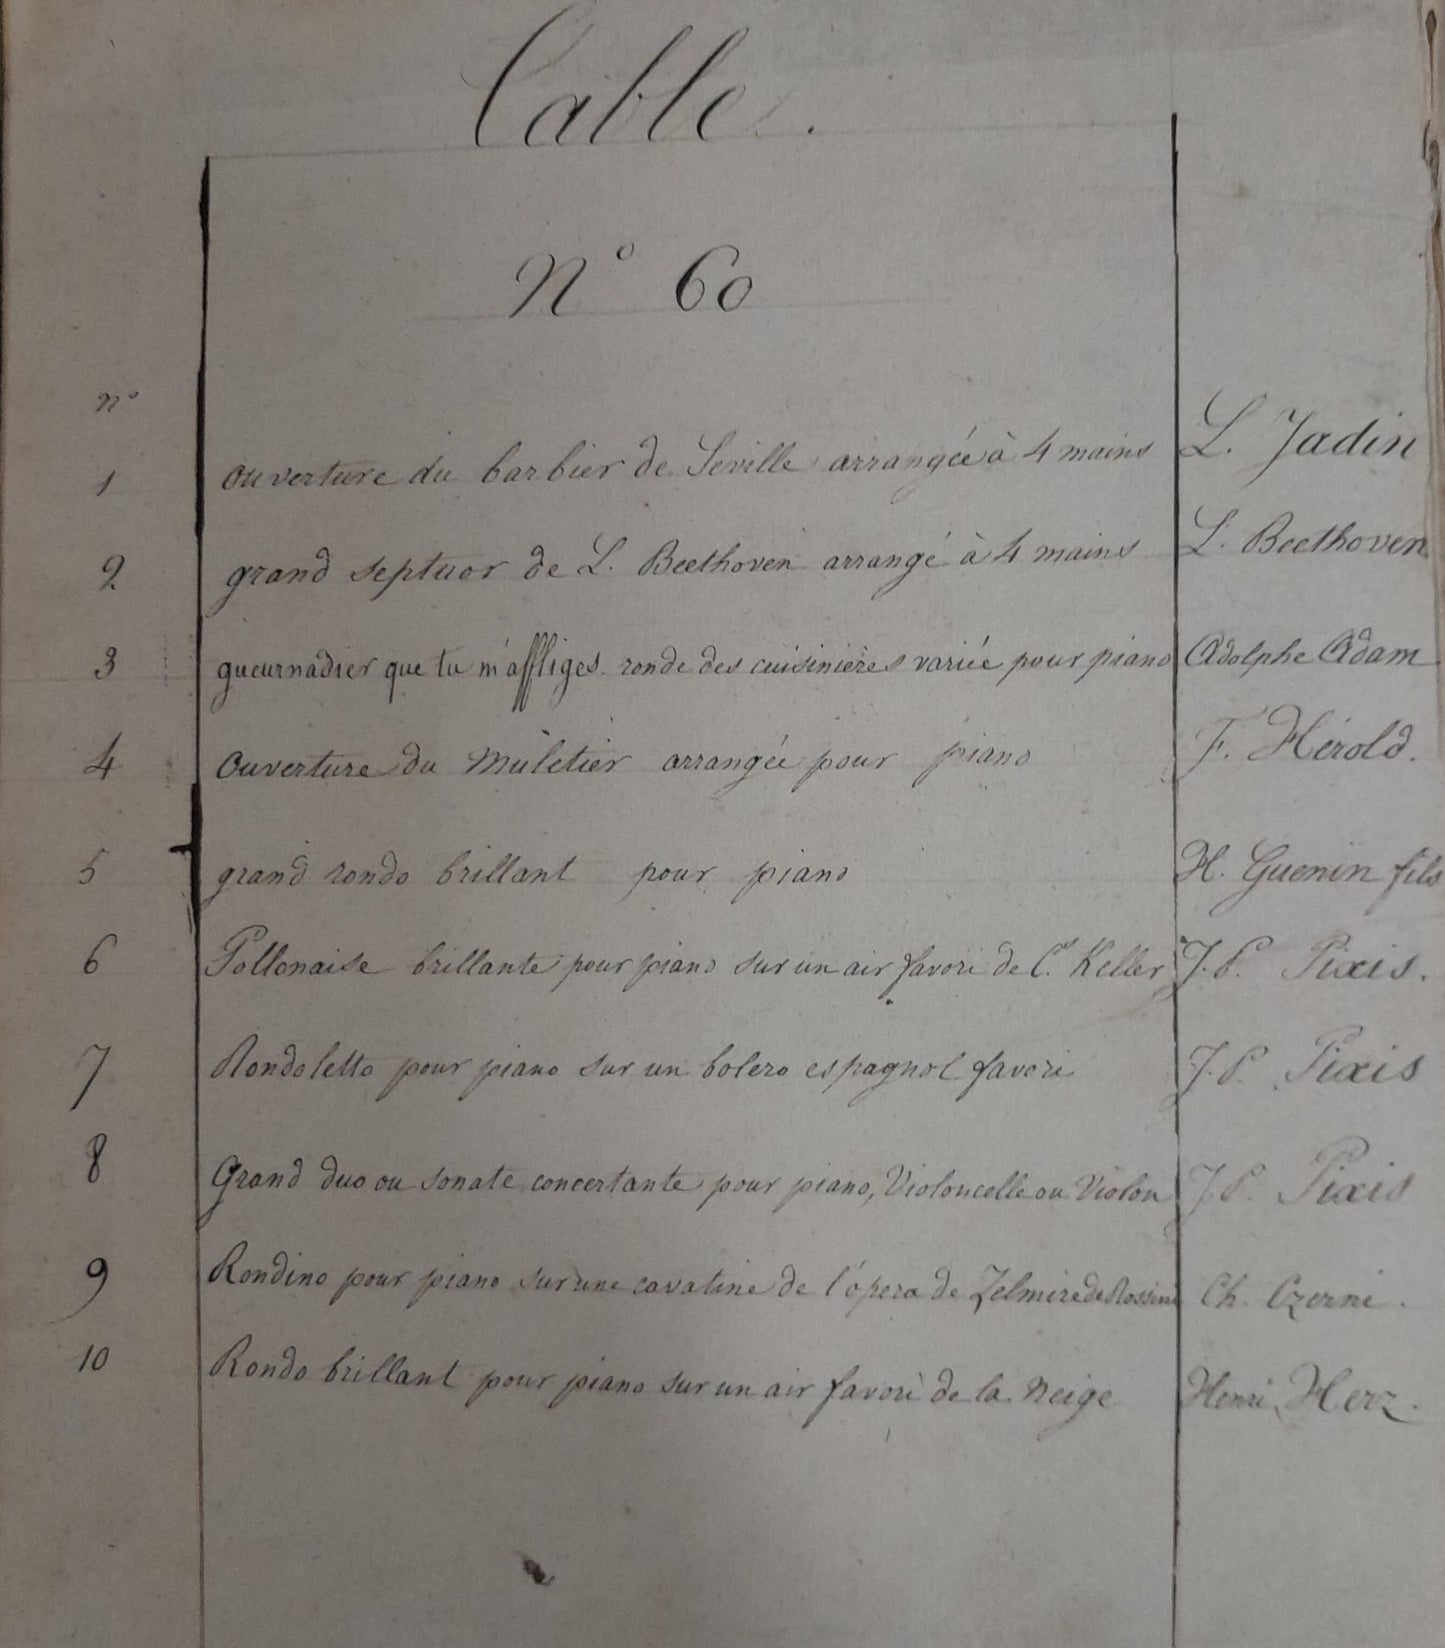 Table.
N° 60
n°
1 ouverture du barbier de Seville arrangée à 4 mains L. Jadin
2 grand septuor de L. Beethoven arrangé à 4 mains L. Beethoven
3 gueurnadier que tu m'affliges ronde des cuisinières variée pour piano Adolphe Adam
4 Ouverture du Muletier arrangée pour piano F. Hérold.
5 grand rondo brillant pour piano H. Guenin fils
6 Pollonaise brillante pour piano sur un air favori de C. Keller J.P. Pixis.
7 Rondoletto pour piano sur un bolero espagnol favori J.P. Pixis
8 Grand duo ou sonate concertante pour piano, Violoncelle ou Violon J.P. Pixis
9 Rondino pour piano sur une cavatine de l'ópera de Zelmire de Rossini Ch. Czerni.
10 Rondo brillant pour piano sur un air favori de la Neige Henri Herz.